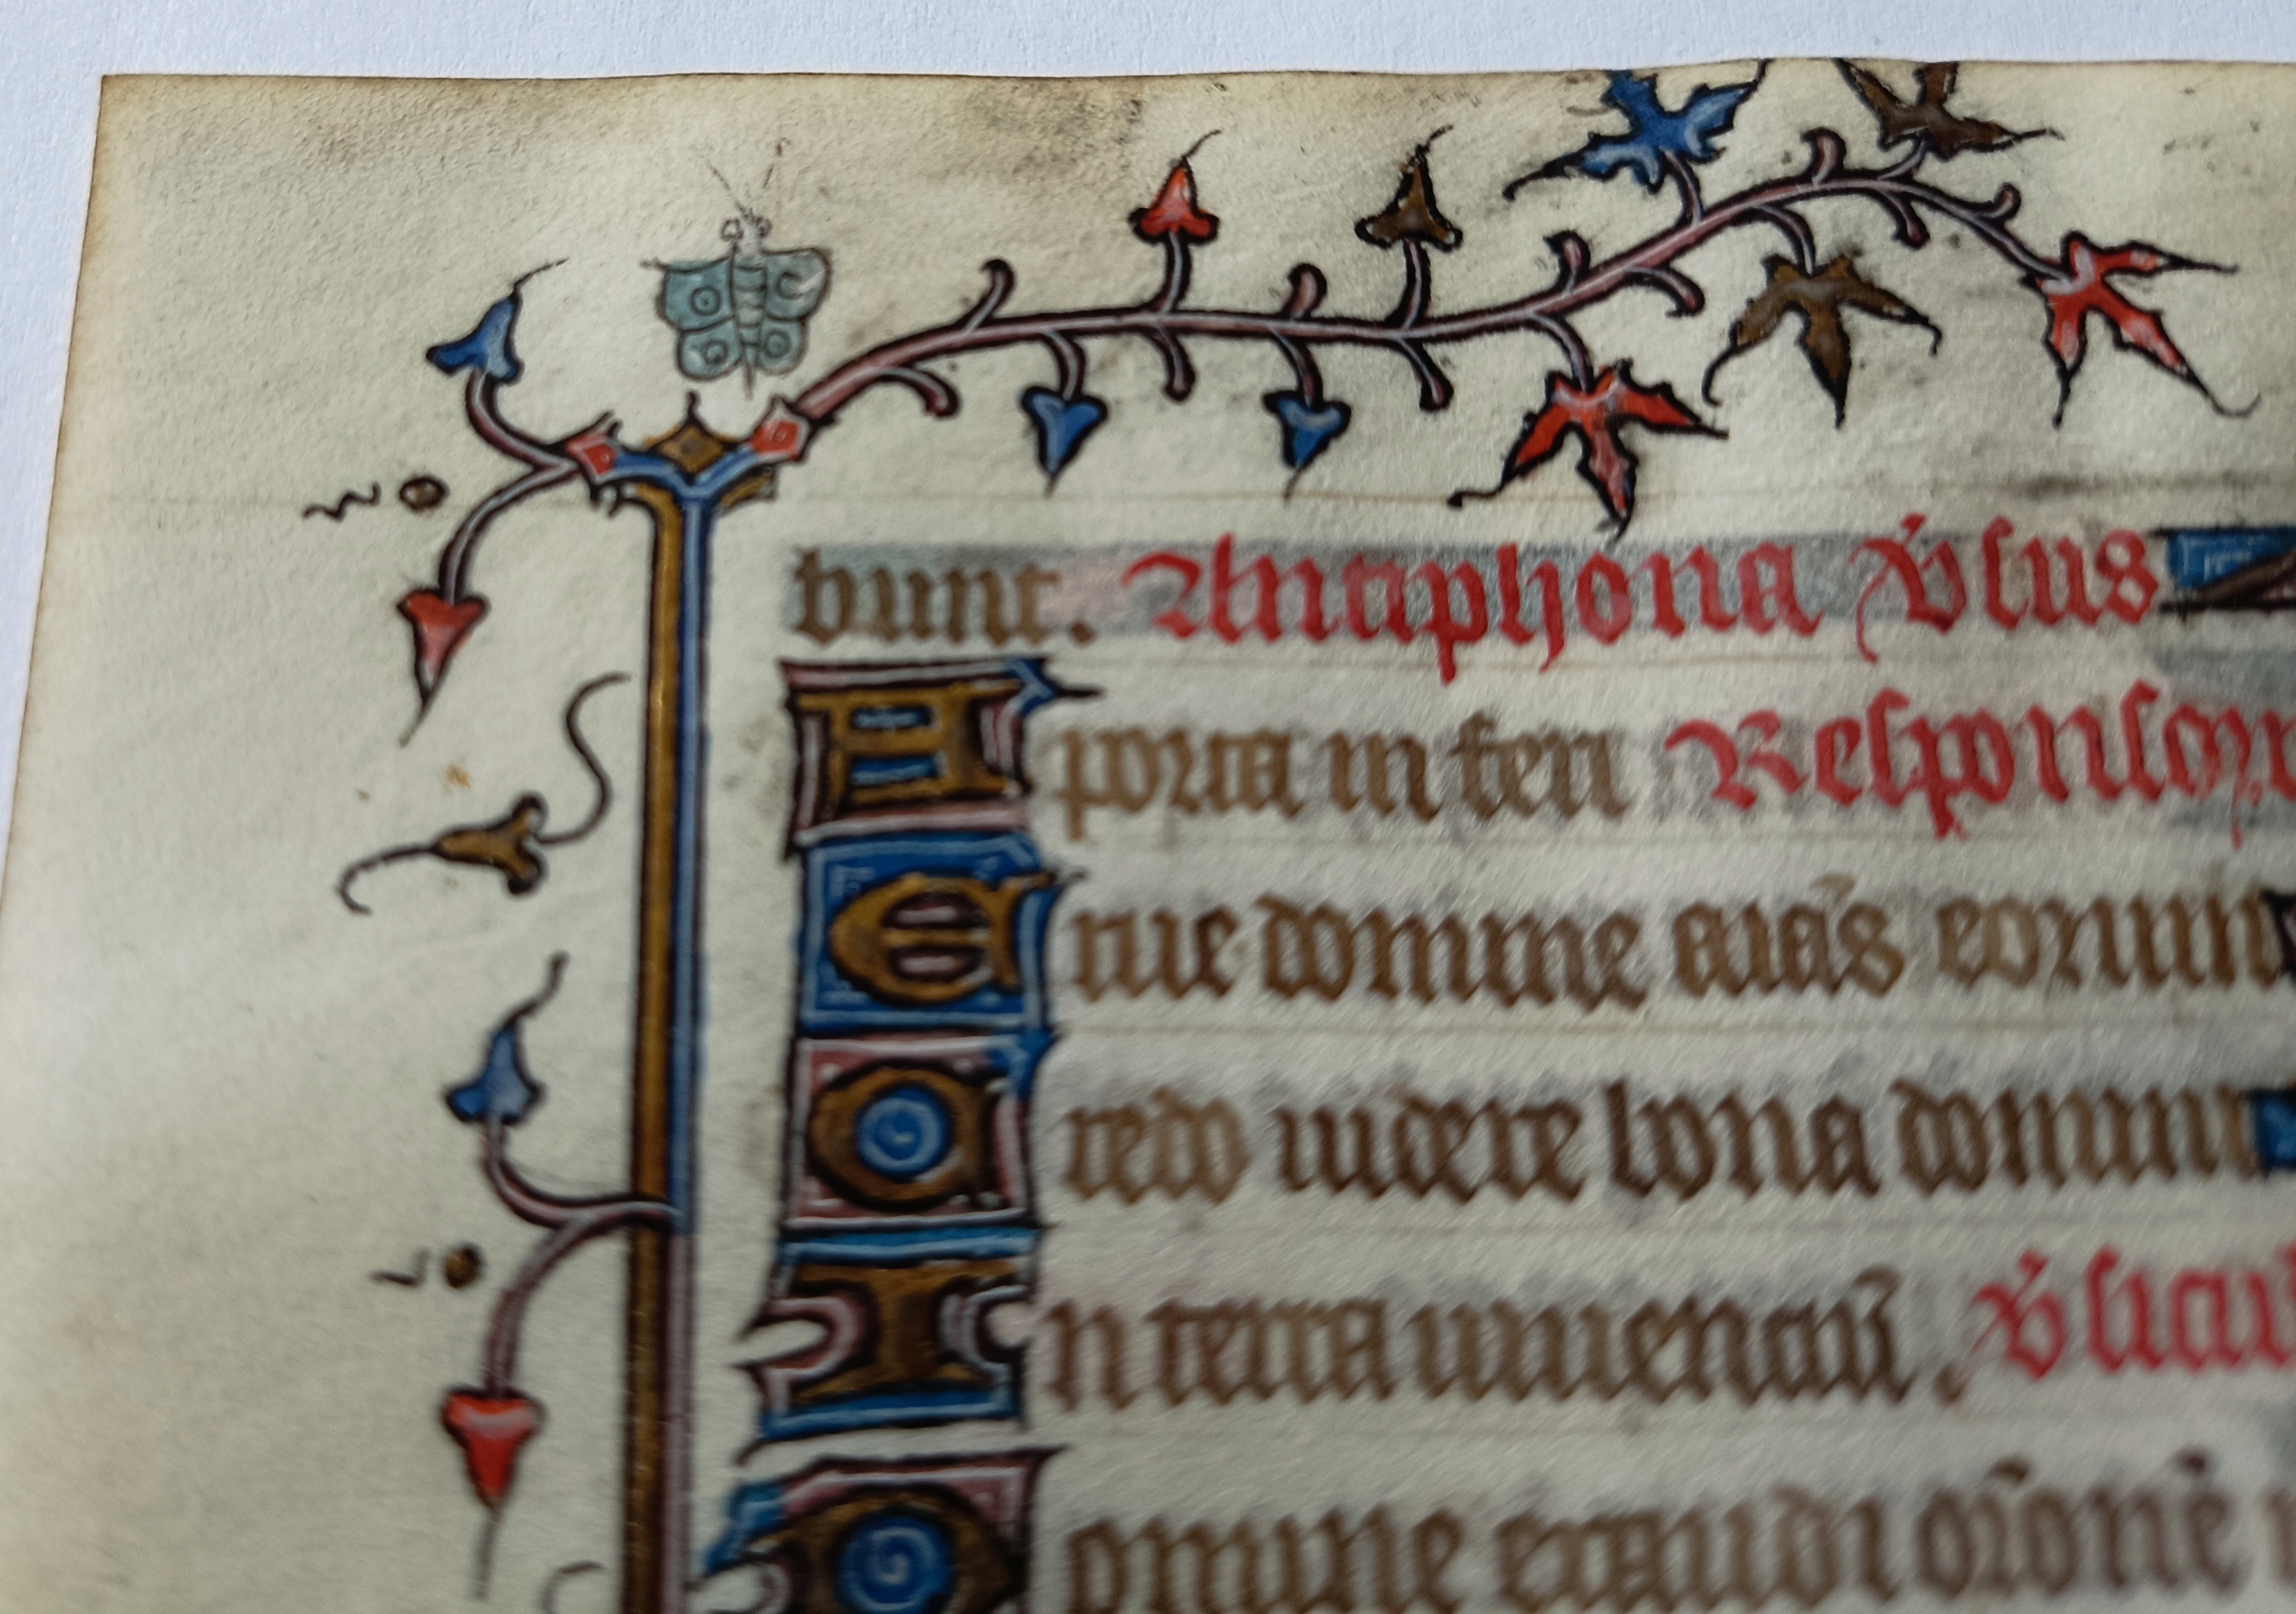 bunt. Antiphona v̄sus
A porta inferi Responsor
Erue domine aīās eorum
Credo uidere bona domini
In terra uiuentiū. v̄sicul
Domine exaudi orōnē